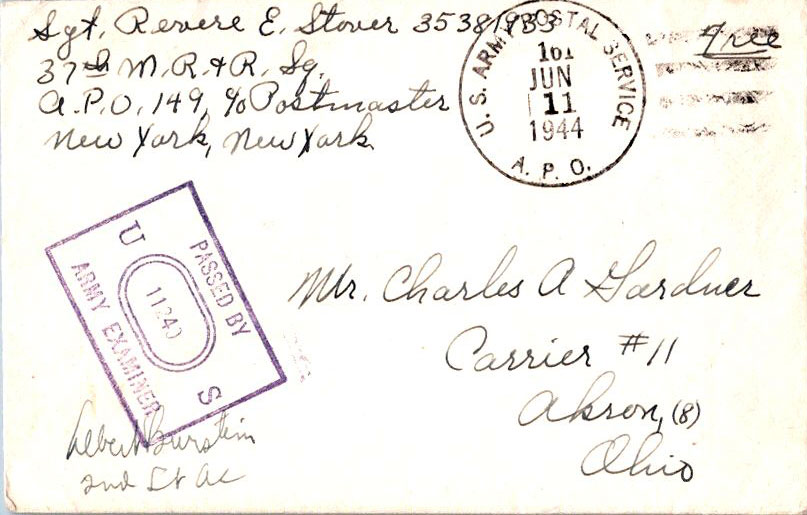 Sgt. Revere E. Stover 35381933
37th M.R.&R. Sq.
A.P.O. 149, c/o Postmaster
New York, New York
Free
U.S. ARMY POSTAL SERVICE
JUN
11
1944
A. P. O.
PASSED BY
U S
ARMY EXAMINER
Mr. Charles A Gardner
Carrier #11
Akron, (8)
Ohio
Burstein
2nd Lt AC